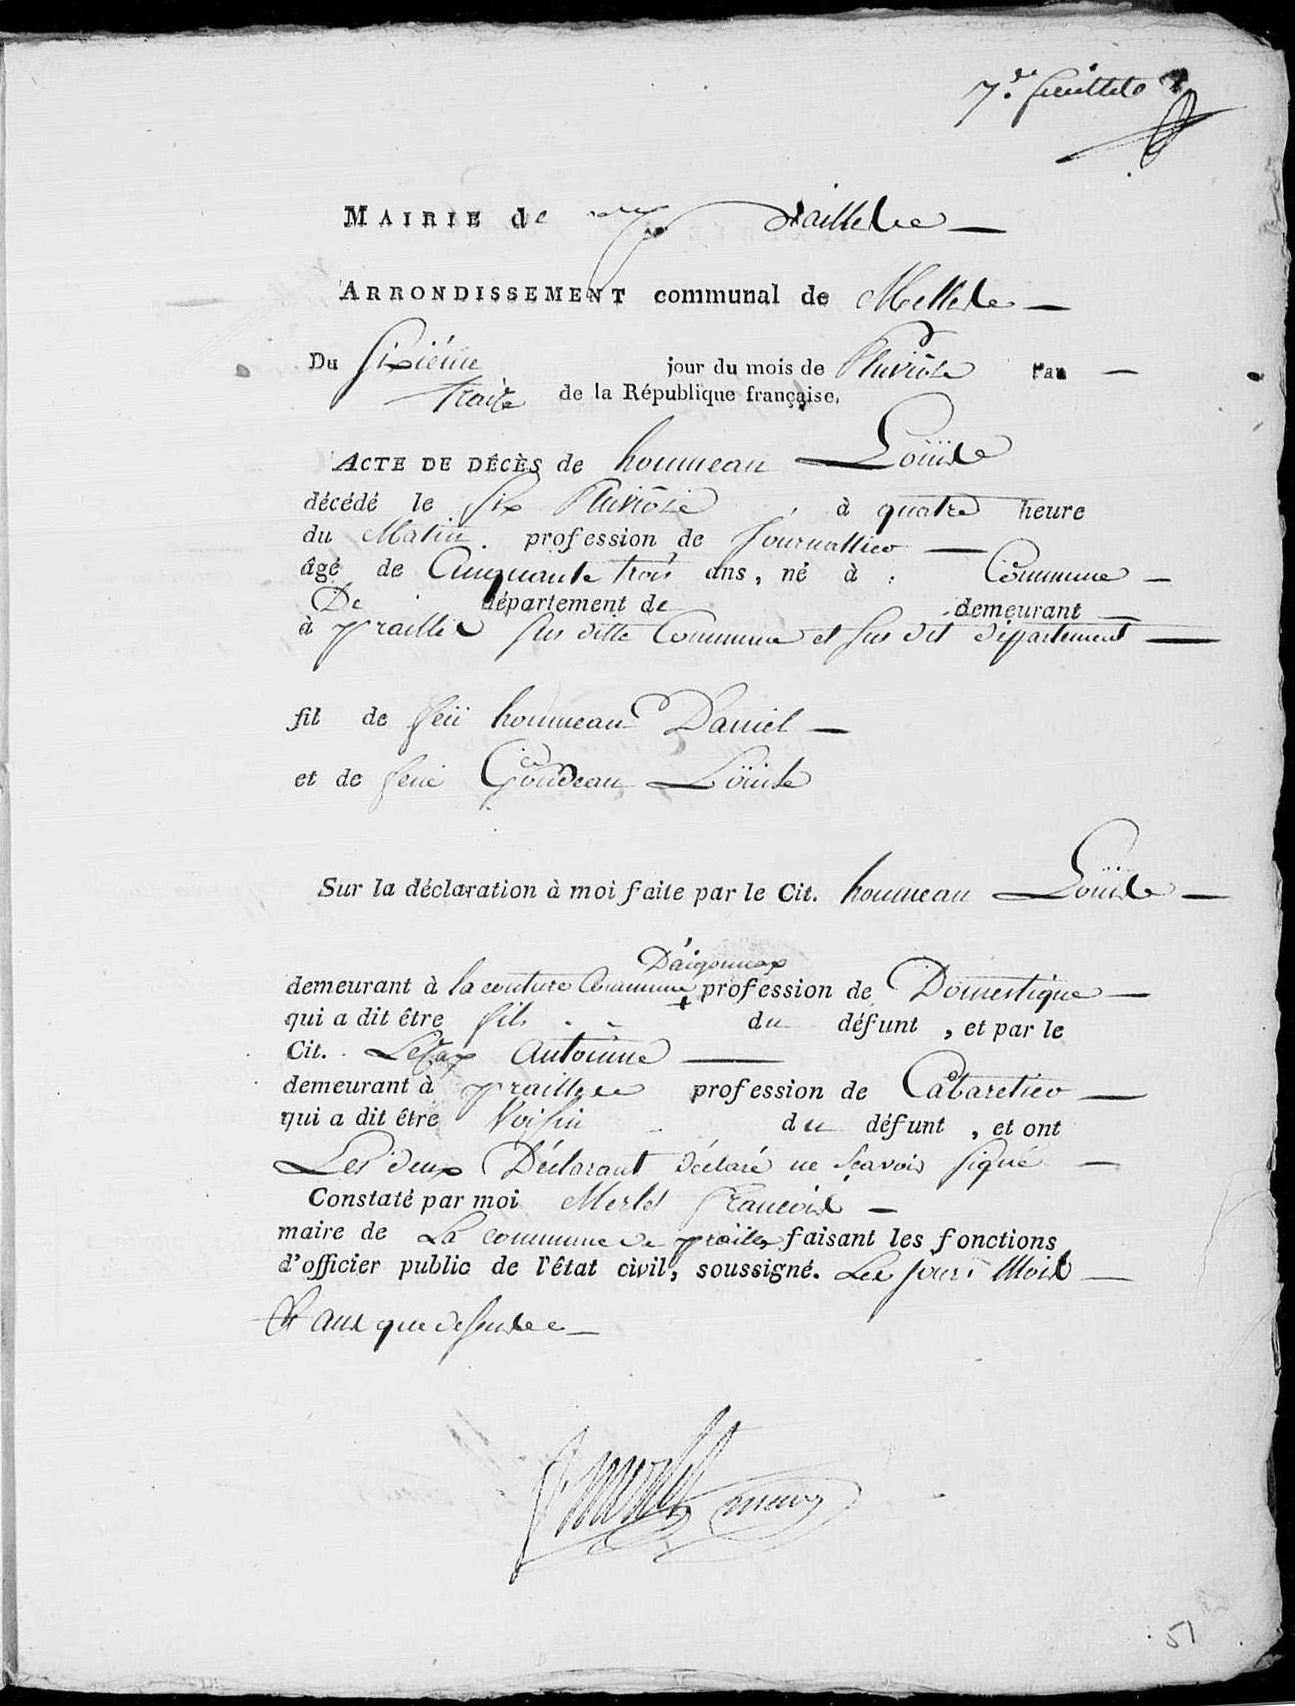 7.e feuillete
MAIRIE de prailles
ARRONDISSEMENT communal de Melle
Du sixiéme jour du mois de Pluviôse l'an
traize de la République française.
ACTE DE DÉCÈS de houmeau Loüis
décédé le six Pluviôse, à quatre heure
du Matin. profession de Journallier
âgé de Cinquante trois ans, né à : Commune
De département de demeurant
à prailles sus ditte Commune et sus dit département
fil de feü houmeau Daniel
et de feüe Goudeau Loüise
Sur la déclaration à moi faite par le Cit. houmeau Loüis
D'aigonnax
demeurant à la couture Commune + profession de Domestique
qui a dit être fils du défunt, et par le
Cit. Antoinne
demeurant à prailles profession de Cabaretier
qui a dit être Voisin du défunt, et ont
Les deux Déclarant déclaré ne sçavoir signé
Constaté par moi Merlet François
maire de La commune de prailles faisant les fonctions
d'officier public de l'état civil, soussigné. Les jours Mois
Et ans que dessus
f merlet maire
51